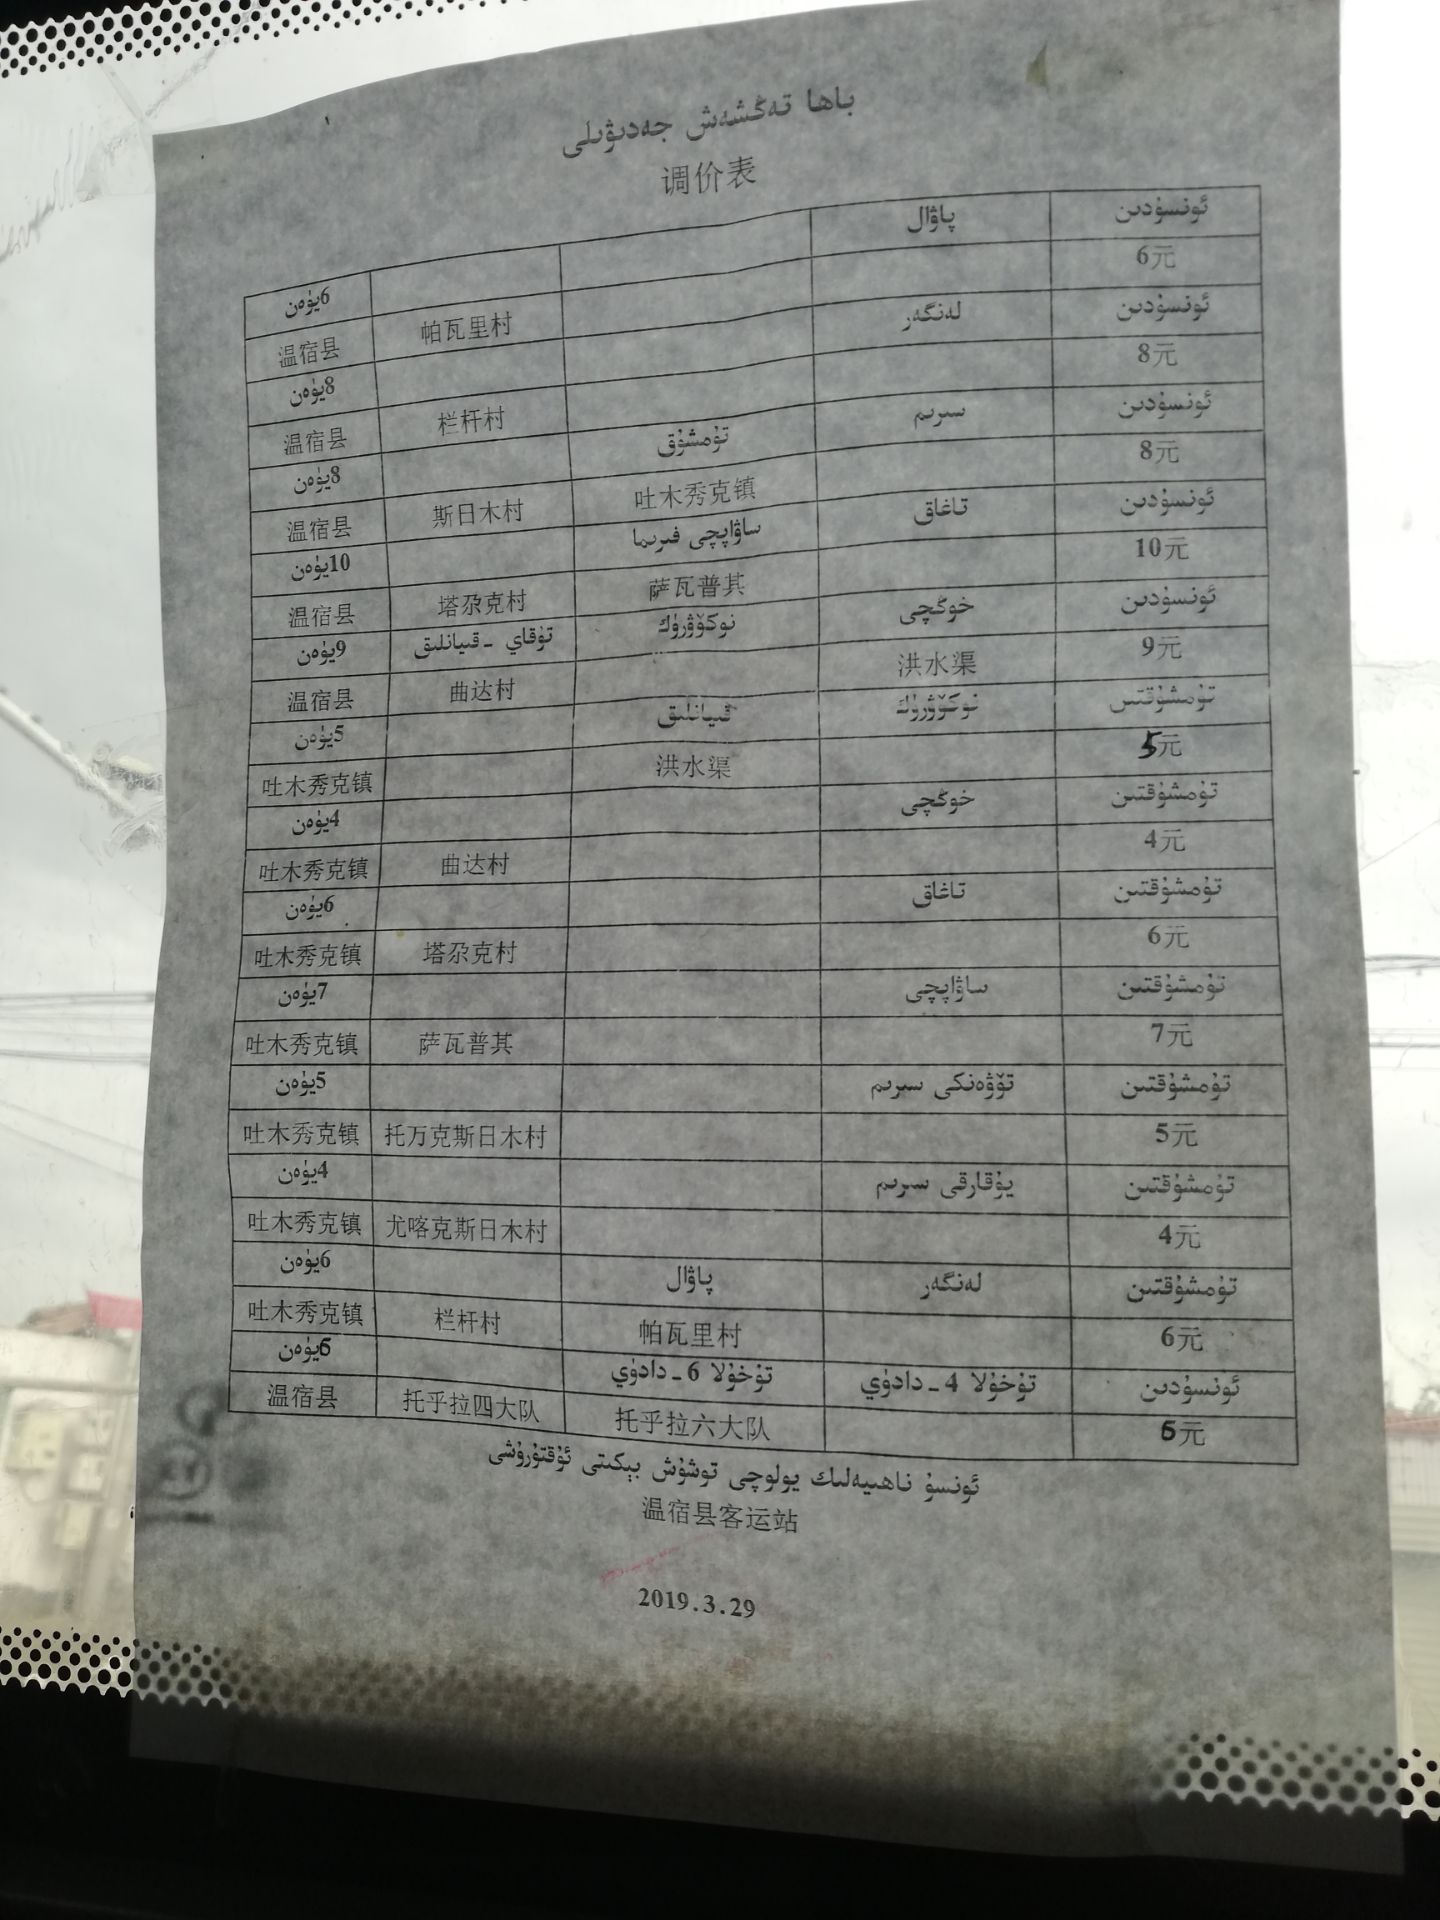 باھا تەڭشەش جەدىۋىلى
调价表
ئونسۇدىن پاۋال 6يۈەن
温宿县 帕瓦里村 6元
ئونسۇدىن لەنگەر 8يۈەن
温宿县 栏杆村 8元
ئونسۇدىن سىرىم تۇمشۇق 8يۈەن
温宿县 斯日木村 吐木秀克镇 8元
ئونسۇدىن تاغاق ساۋاپچى فىرىما 10يۈەن
温宿县 塔尕克村 萨瓦普其 10元
ئونسۇدىن خوڭچى نوكۆۋرۈك تۇقاي ـ قىيانلىق 9يۈەن
温宿县 曲达村 洪水渠 9元
تۇمشۇقتىن نوكۆۋرۈك قىيانلىق 5يۈەن
吐木秀克镇 洪水渠 5元
تۇمشۇقتىن خوڭچى 4يۈەن
吐木秀克镇 曲达村 4元
تۇمشۇقتىن تاغاق 6يۈەن
吐木秀克镇 塔尕克村 6元
تۇمشۇقتىن ساۋاپچى 7يۈەن
吐木秀克镇 萨瓦普其 7元
تۇمشۇقتىن تۆۋەنكى سىرىم 5يۈەن
吐木秀克镇 托万克斯日木村 5元
تۇمشۇقتىن يۇقارقى سىرىم 4يۈەن
吐木秀克镇 尤喀克斯日木村 4元
تۇمشۇقتىن لەنگەر پاۋال 6يۈەن
吐木秀克镇 栏杆村 帕瓦里村 6元
ئونسۇدىن تۇخۇلا 4 ـ دادۈي تۇخۇلا 6 ـ دادۈي 6يۈەن
温宿县 托乎拉四大队 托乎拉六大队 6元
ئونسۇ ناھىيەلىك يولوچى توشۇش بېكىتى ئۇقتۇرۇشى
温宿县客运站
2019.3.29